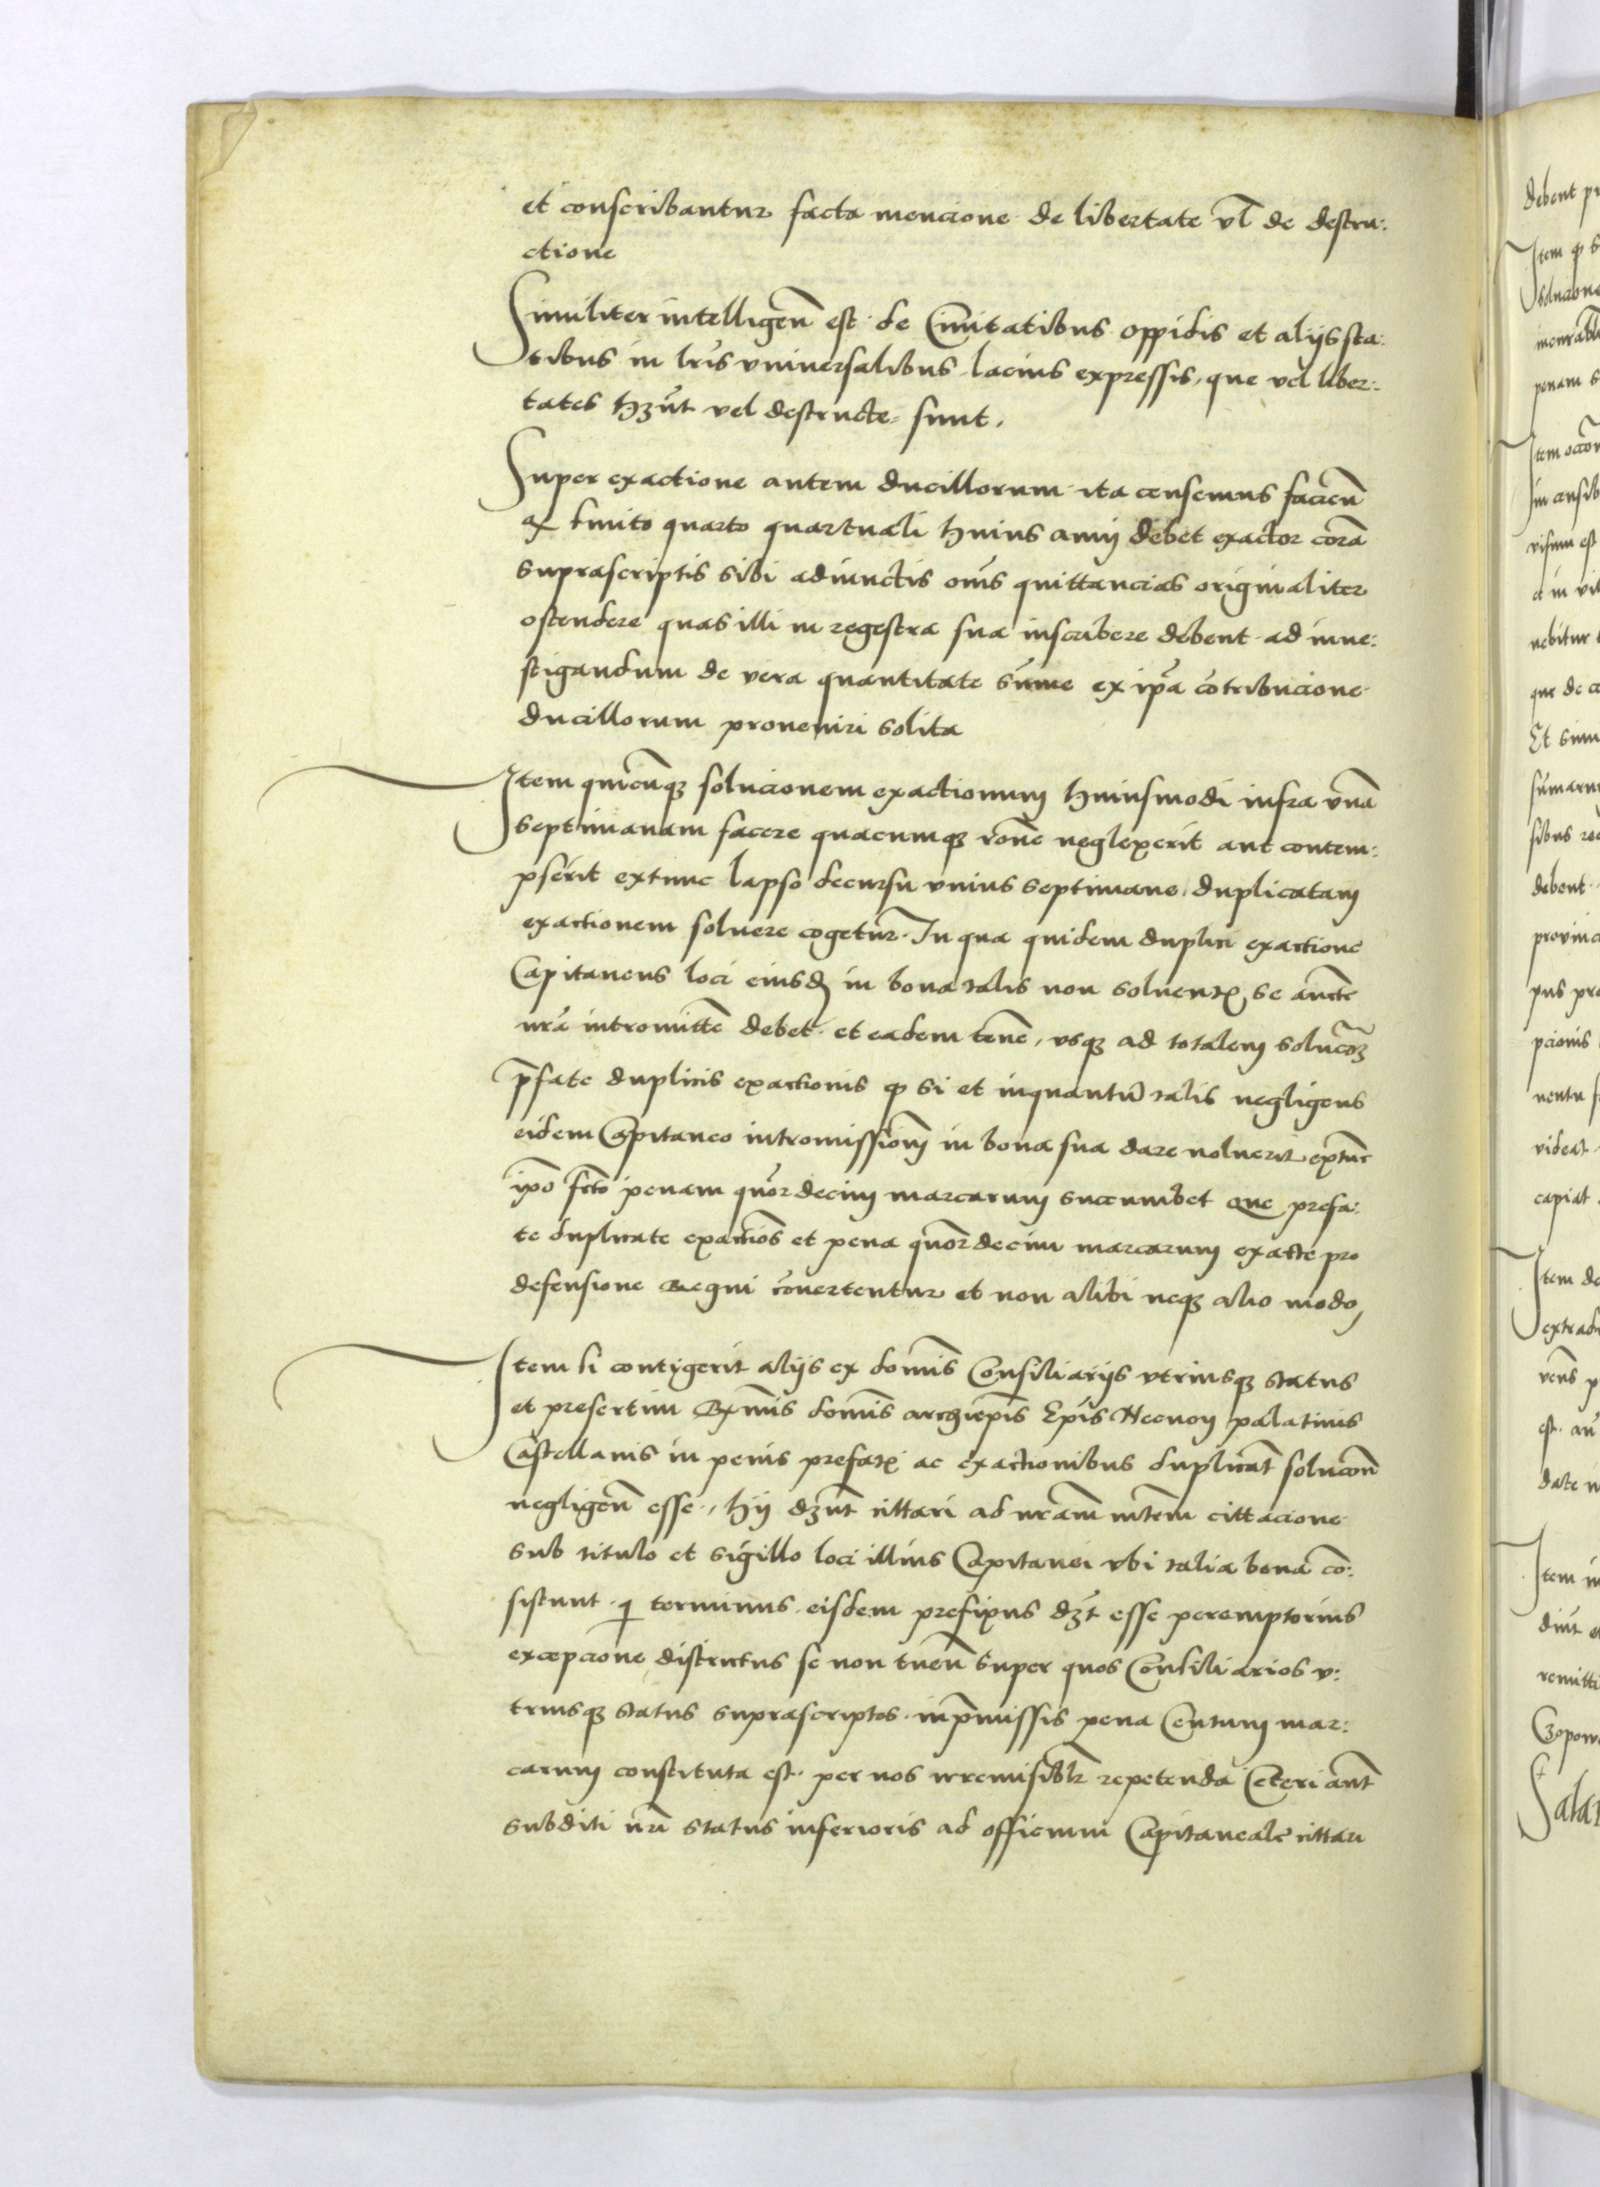 et conscribantur facta mencione de libertate vl̃ de destru:
ctione
Similiter intelligen̄ est de Ciuitatibus oppidis et aliis sta:
tibus in lr̃is vniuersalibus lacius expressis, que vel liber:
tates hn̄t vel destructe sunt.
Super exactione autem ducillorum ita censemus facien̄
q finito quarto quartuali huius anni debet exactor corā
suprascriptis sibi adiunctis om̄s quittancias originaliter
ostendere quas illi in regestra sua inscribere debent ad inue:
stigandum de vera quantitate sūme ex ip̄a cōtribucione
ducillorum proueniri solita
Item quicūq solucionem exactionum huiusmodi infra vnā
septimanam facere quacumq rōne neglexerit aut contem:
pserit extunc lapso decursu vnius septimane duplicatam
exactionem soluere cogetur. In qua quidem duplici exactione
Capitaneus loci eiusd in bona talis non soluent se aucte
nr̃a intromitte debet et eadem tene, vsq ad totalem solucoȝ
p̄fate duplicis exactionis q si et inquantū talis negligens
eidem Capitaneo intromissionem in bona sua dare noluerit extūc
ip̄o fcto penam quor decim marcarum succumbet que prefa:
te duplicate exactiōs et pena quor decim marcarum exacte pro
defensione Regni cōuertentur et non alibi neq alio modo
Item si contigerit aliis ex dom̄is Consiliariis vtriusq status
et presertim Rm̄is dom̄is archiep̄is Ep̄is Necnon palatinis
Castellanis in penis prefat ac exactionibus duplicat solucōn
negligen̄ esse, hii dn̄t cittari ad nr̃am in̄tem cittacione
sub titulo et sigillo loci illius Capitanei vbi talia bona cō:
sistunt q terminus eisdem prefixus dȝt esse peremptorius
excepcione districtus se non tuen̄ super quos Consiliarios v:
triusq status suprascriptos in p̄missis pena Centum mar:
carum constituta est per nos irremisiblr repetenda Ceteri aūt
subditi nr̃i status inferioris ad officium Capitaneale cittari